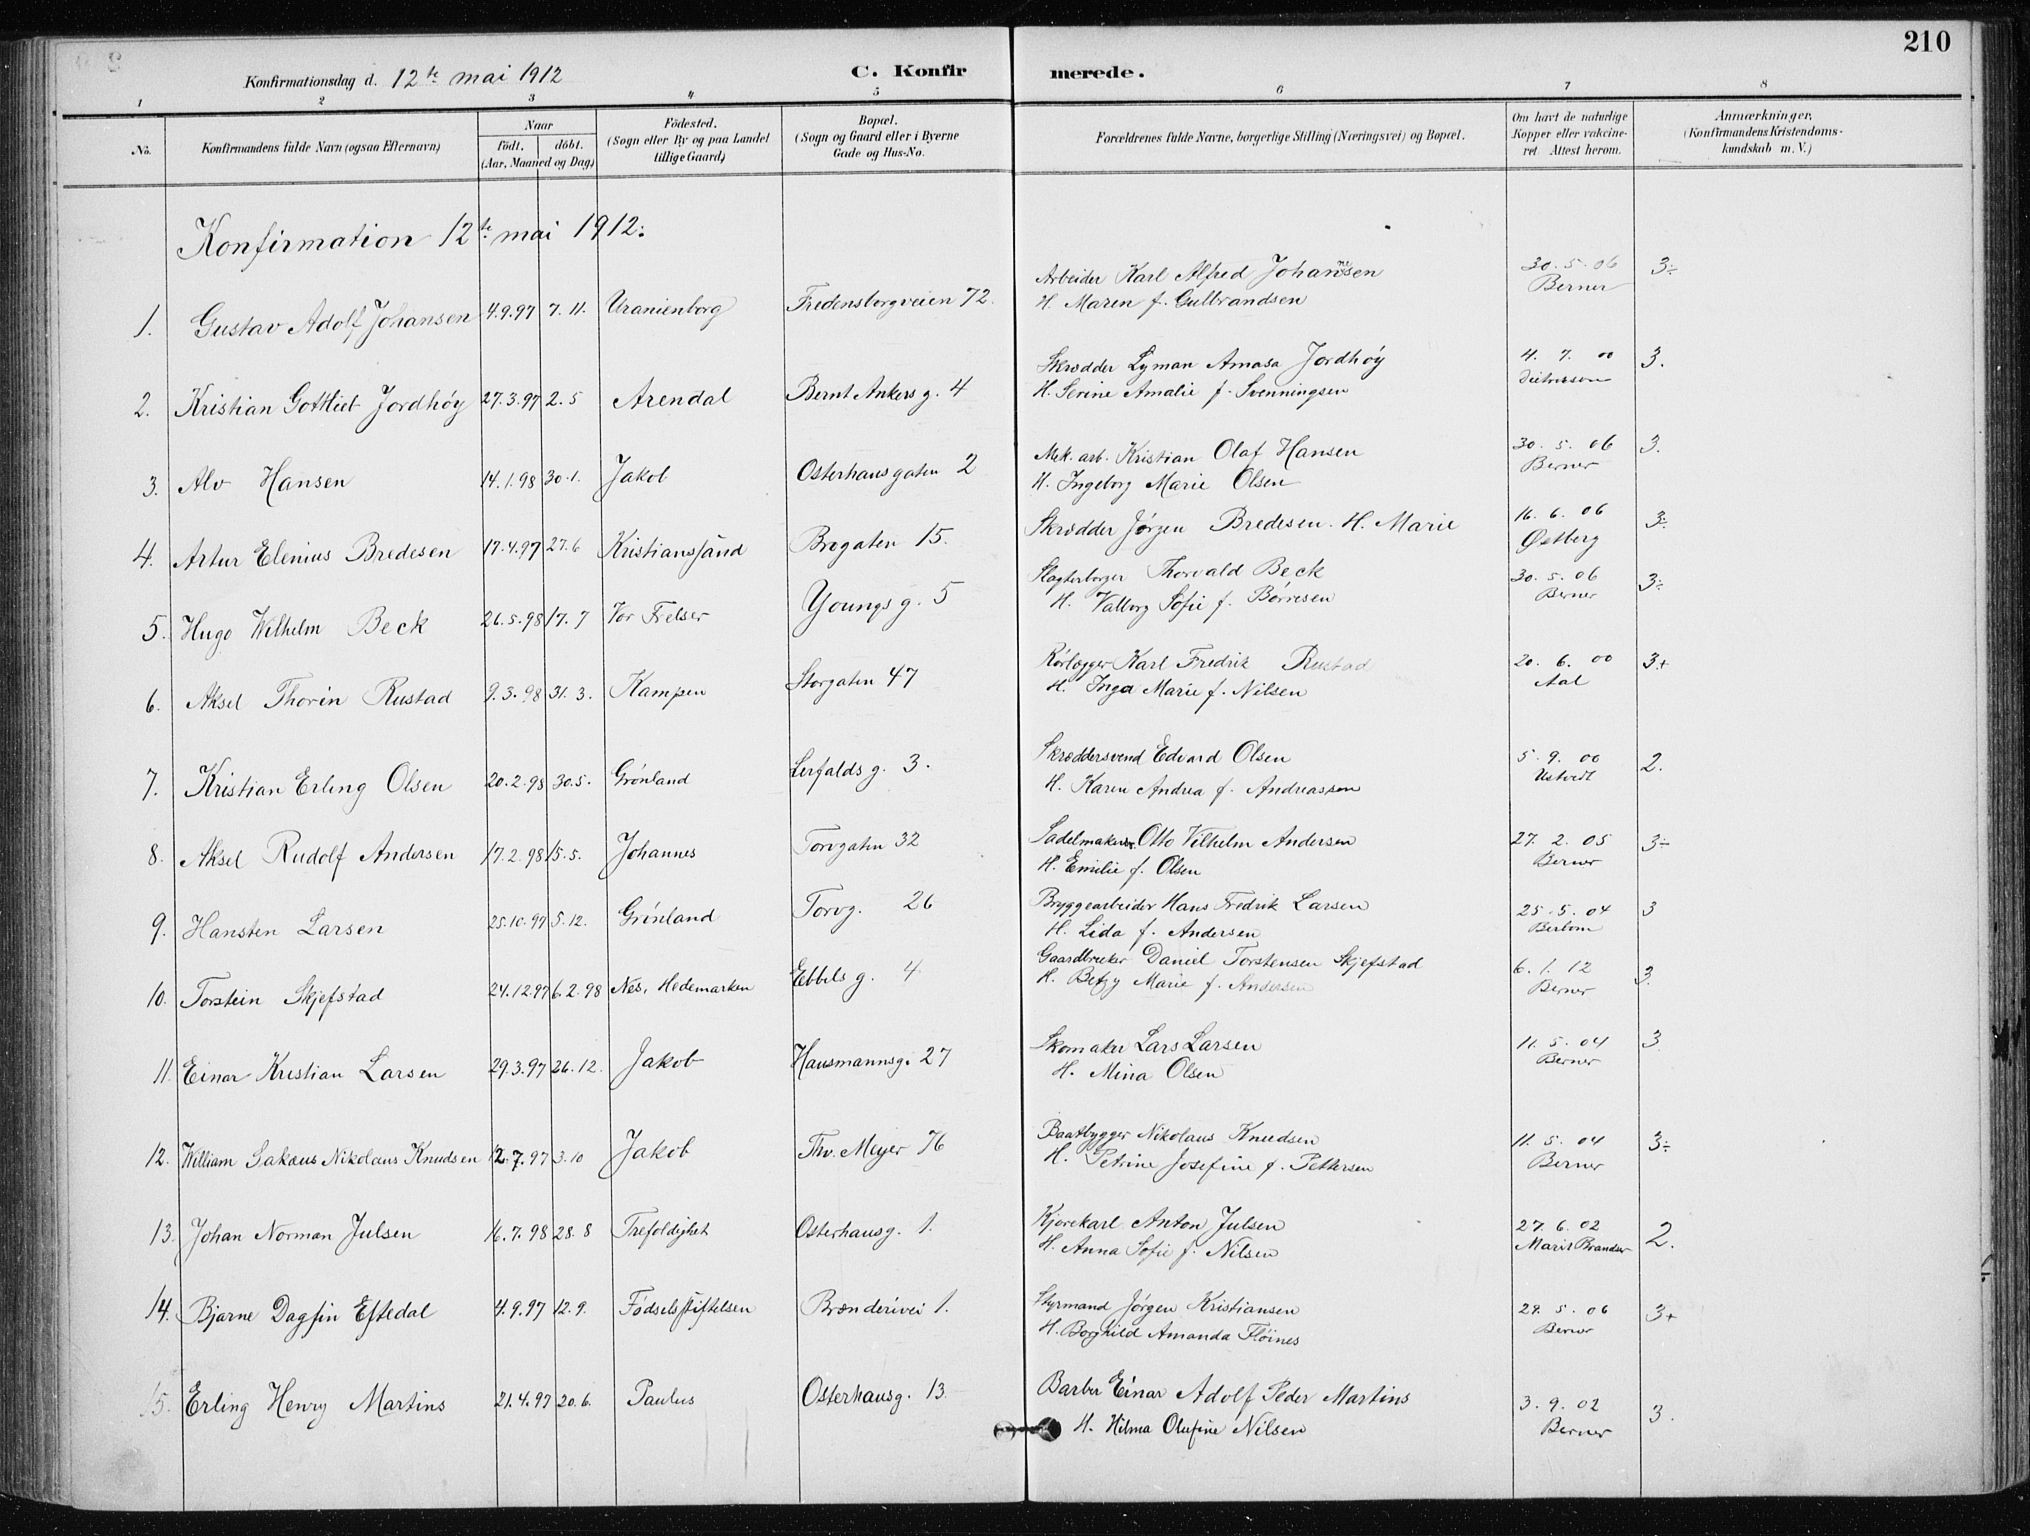 210
Konfirmationsdag d. 12te mai 1912 C. Konfirmerede.
1 2 3 4 5 6 7 8
No. Konfirmandens fulde Navn (ogsaa Efternavn) Naar født. døbt. (Aar, Maaned og Dag) Fødested. (Sogn eller By og paa Landet tillige Gaard) Bopæl. (Sogn og Gaard eller i Byerne Gade og Hus-No. Forældrenes fulde Navne, borgerlige Stilling (Næringsvei) og Bopæl. Om havt de naturlige Kopper eller vakcineret Attest herom. Anmærkninger, (Konfirmandens Kristendomskundskab m. V.)
Konfirmation 12te mai 1912.
1. Gustav Adolf Johansen 4.9.97 7.11. Uranienborg Fredensborgveien 72. Arbeider Karl Alfred Johannesen 30.5.06 3÷
H. Maren f. Gulbrandsen Berner
2. Kristian Gottlieb Jordhøy 27.3.97 2.5 Arendal Bernt Ankers g. 4 Skrædder Lyman Amasa Jordhøy 4.7.00 3.
H. Serine Amalie f. Svenningsen
3. Alv Hansen 14.1.98 30.1. Jakob Osterhausgaten 2 Mek. arb. Kristian Olaf Hansen 30.5.06 3.
H. Ingeborg Marie Olsen Berner
4. Artur Elenius Bredesen 17.4.97 27.6 Kristianssand Brogaten 15. Skrædder Jørgen Bredesen. H. Marie 16.6.06 3÷
Østberg
5. Hugo Wilhelm Beck 26.5.98 17.7 Vor Frelser Youngs g. 5 Slagterborger Thorvald Beck 30.5.06 3÷
H. Valborg Sofie f. Børresen Berner
6. Aksel Thorin Rustad 9.3.98 31.3. Kampen Storgaten 47 Rørlægger Karl Fredrik Rustad 20.6.00 3+
H. Inga Marie f. Nilsen Aal
7. Kristian Erling Olsen 20.2.98 30.5. Grønland Lerfalds g. 3. Skræddersvend Edvard Olsen 5.9.00 2.
H. Karen Andrea f. Andreassen Ustvedt
8. Aksel Rudolf Andersen 17.2.98 15.5. Johannes Torvgaten 32 Sadelmakersv. Otto Vilhelm Andersen 27.2.05 3÷
H. Emilie f. Olsen Berner
9. Hansten Larsen 25.10.97 5.12. Grønland Torvg. 26 Bryggearbeider Hans Fredrik Larsen 25.5.04 3
H. Lida f. Andersen
10. Torstein Skjefstad 24.12.97 6.2.98 Nes, Hedemarken Ebbels g. 4 Gaardbruker Daniel Torstensen Skjefstad 6.1.12 3.
H. Betzy Marie f. Andersen Berner
11. Einar Kristian Larsen 29.3.97 26.12. Jakob Hausmannsg. 27 Skomaker Lars Larsen 11.5.04 3
H. Mina Olsen Berner
12. William Sakæus Nikolaus Knudsen 12.7.97 3.10 Jakob Thv. Meyer 76 Baatbygger Nikolaus Knudsen 11.5.04 3÷
H. Petrine Josefine f. Pettersen Berner
13. Johan Norman Julsen 16.7.98 28.8 Trefoldighet Osterhausg. 1. Kjørekarl Anton Julsen 27.6.02 2.
H. Anna Sofie f. Nilsen Marit Brandser
14. Bjarne Dagfin Eftedal 4.9.97 12.9. Fødselsstiftelsen Brænderivei 1. Styrmand Jørgen Kristiansen 29.5.06 3+
H. Borghild Amanda Fløines Berner
15. Erling Henry Martins 21.4.97 20.6. Paulus Osterhausg. 13. Barber Einar Adolf Peder Martins 3.9.02 3.
H. Hilma Olufine Nilsen Berner